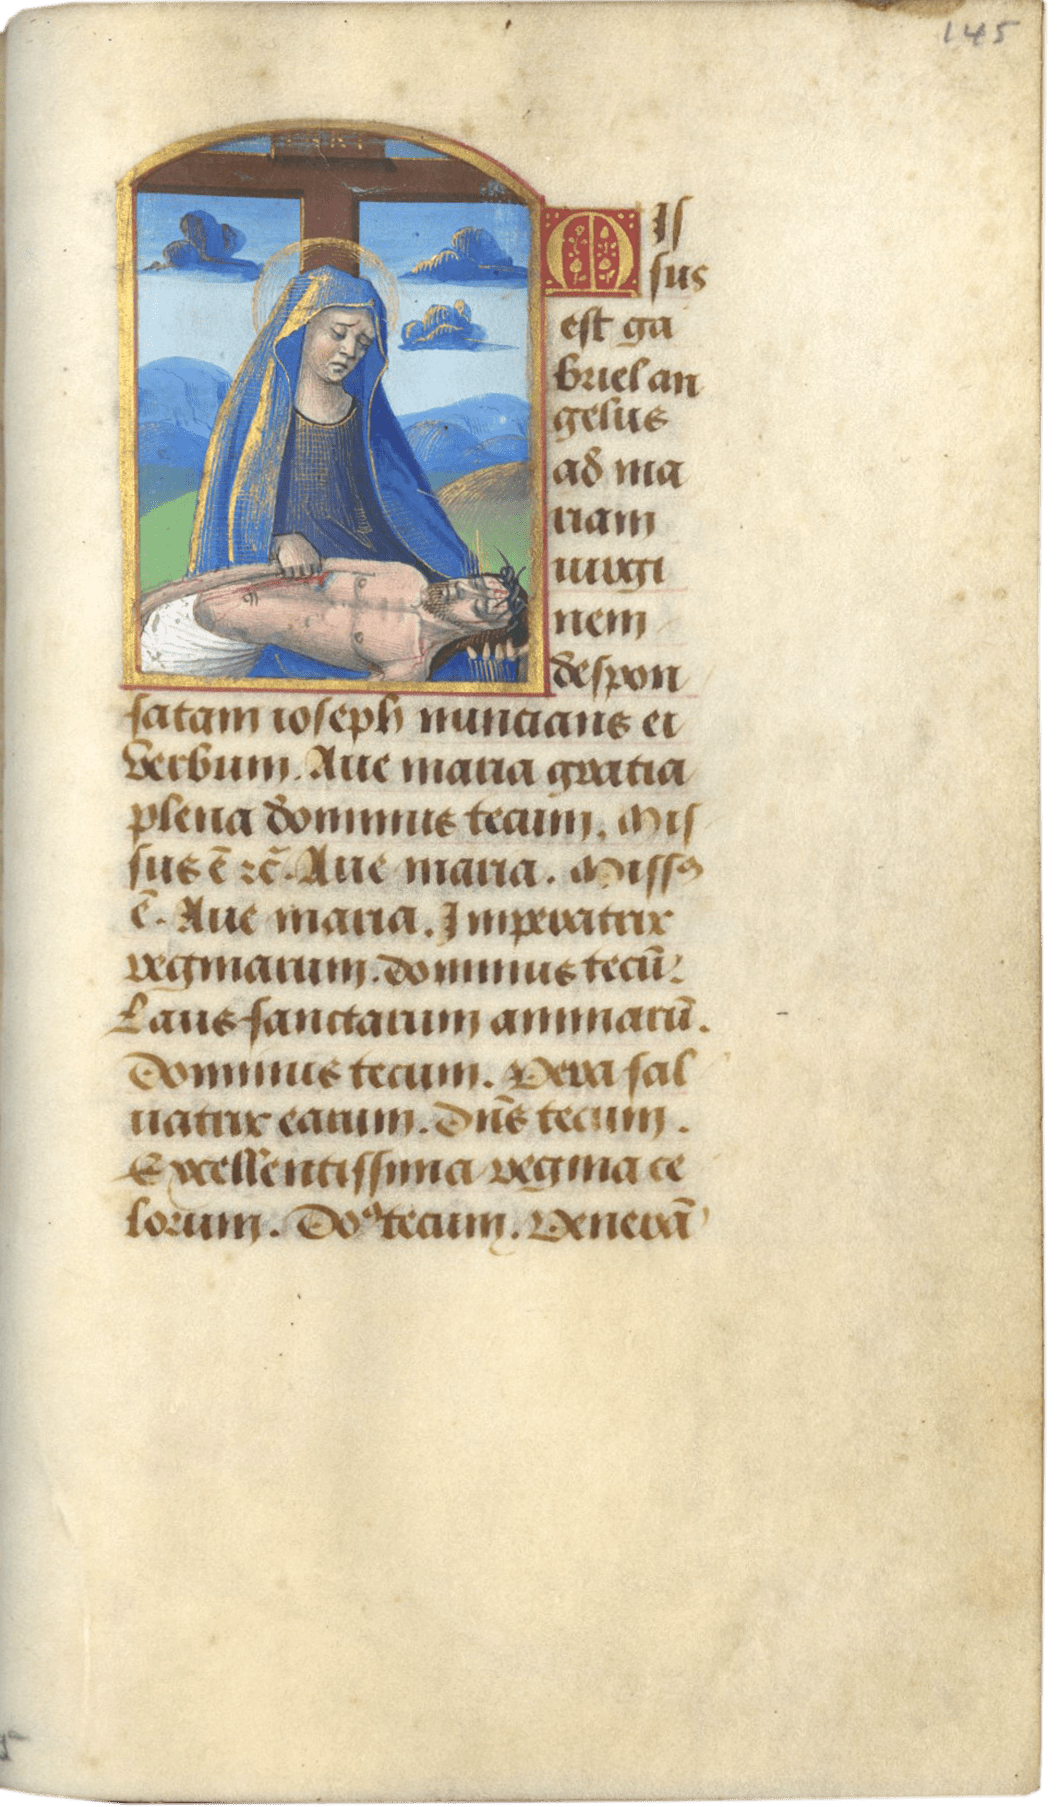 145
Mis
sus
est ga
briel an
gelus
ad ma
riam
uirgi
nem
despon
satam ioseph nuncians ei
verbum. Aue maria gratia
plena dominus tecum. Mis
sus ē ⁊c̄. Aue maria. Missꝰ
ē. Aue maria. Imperatrix
reginarum. dominus tecū.
Laus sanctarum animarū.
Dominus tecum. Vera sal
uatrix earum. Dn̄s tecum.
Excellentissima regina ce
lorum. Doꝰ tecum. Venerā